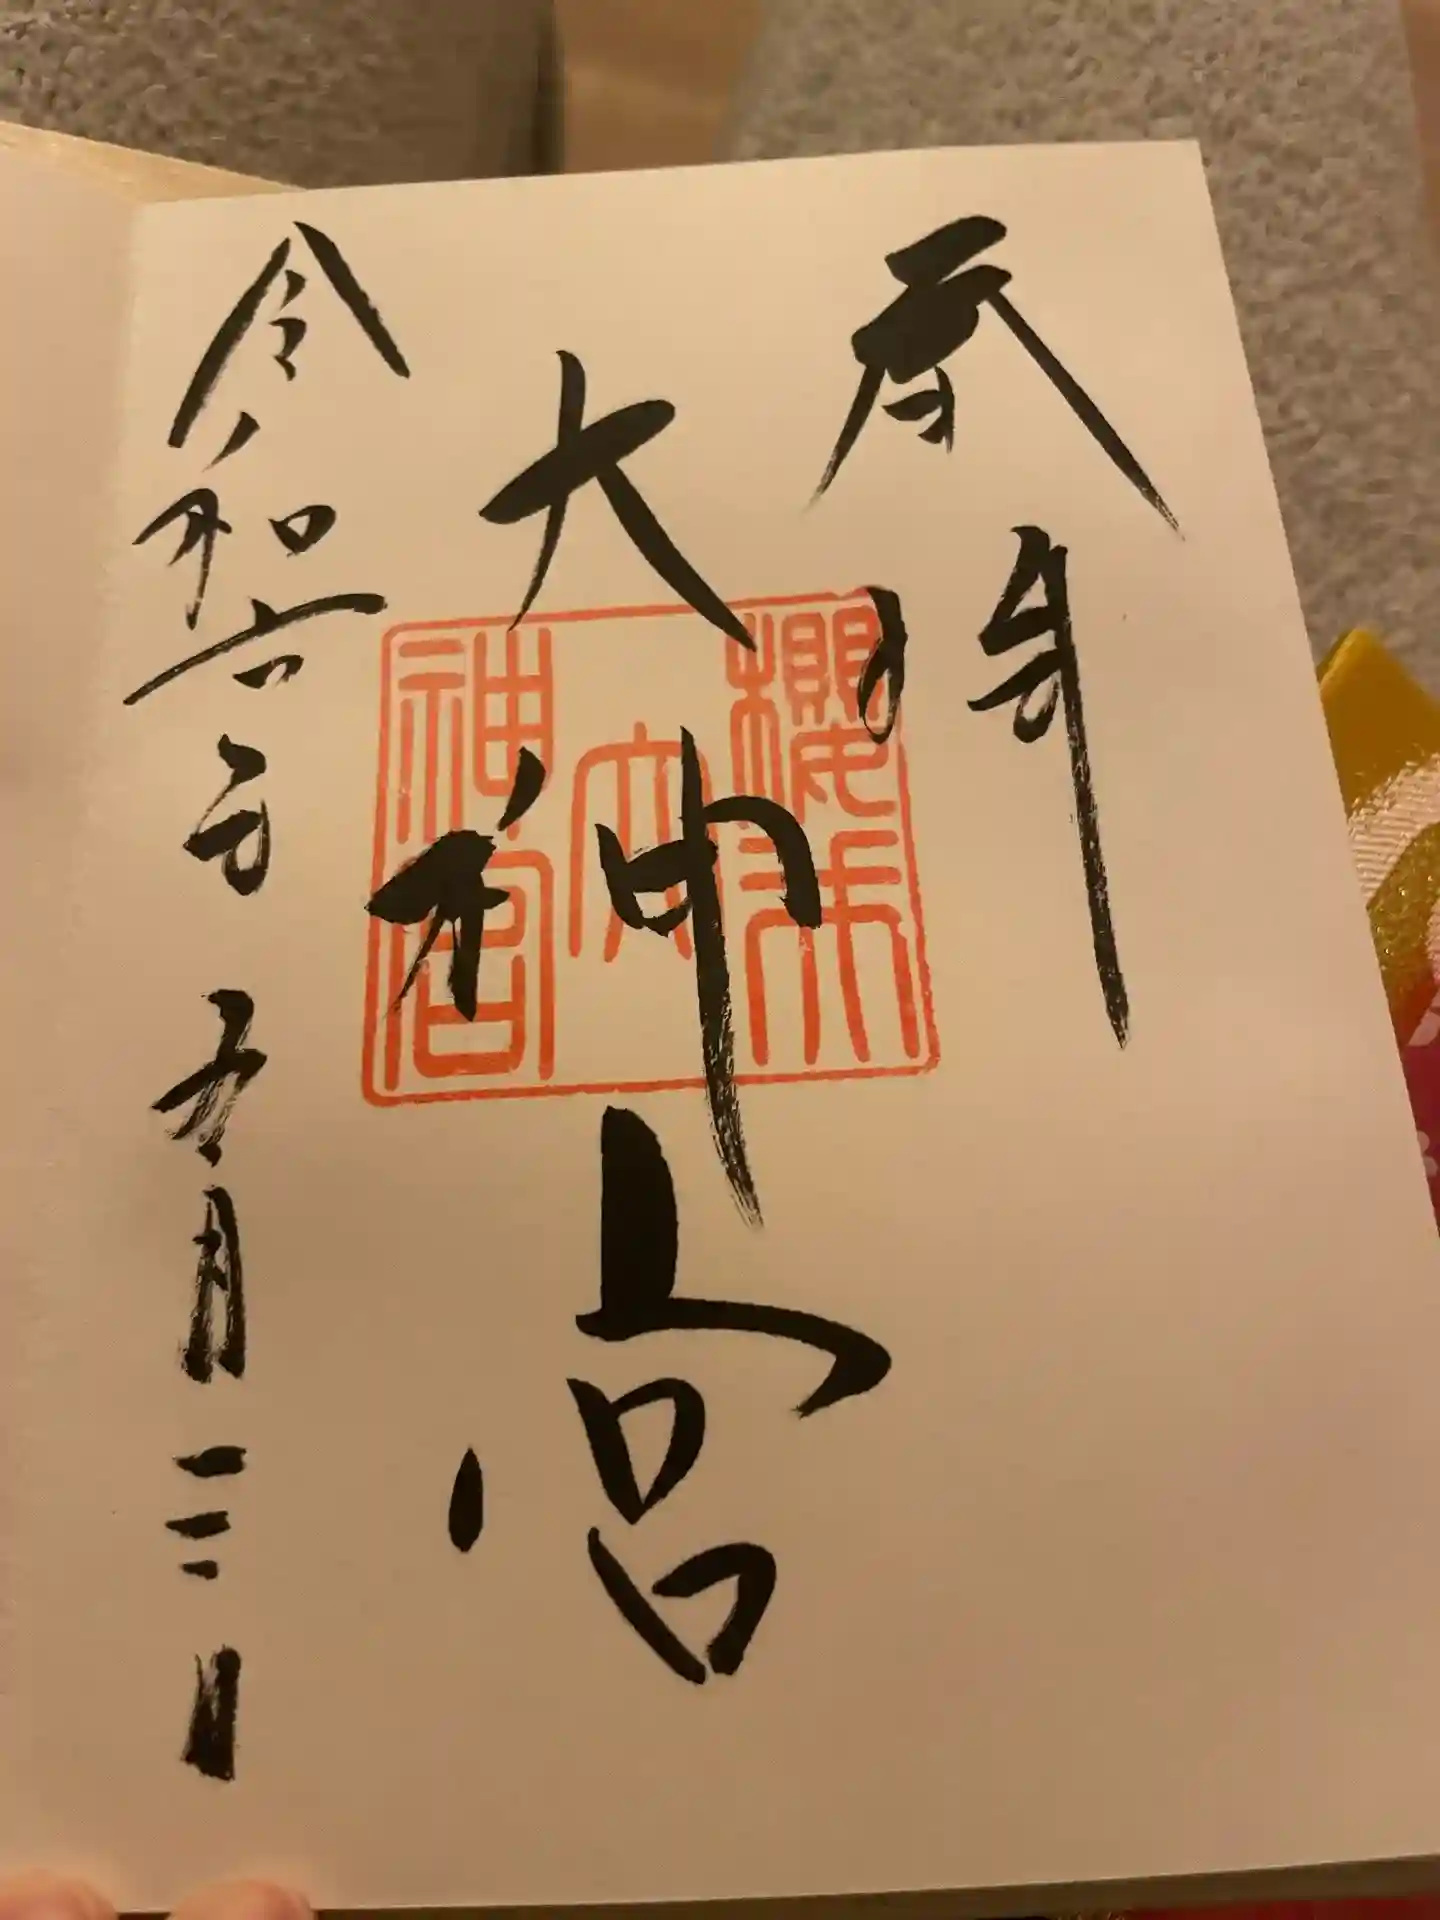 奉拝
大神宮
櫻木
大
神宮
令和六年五月三日